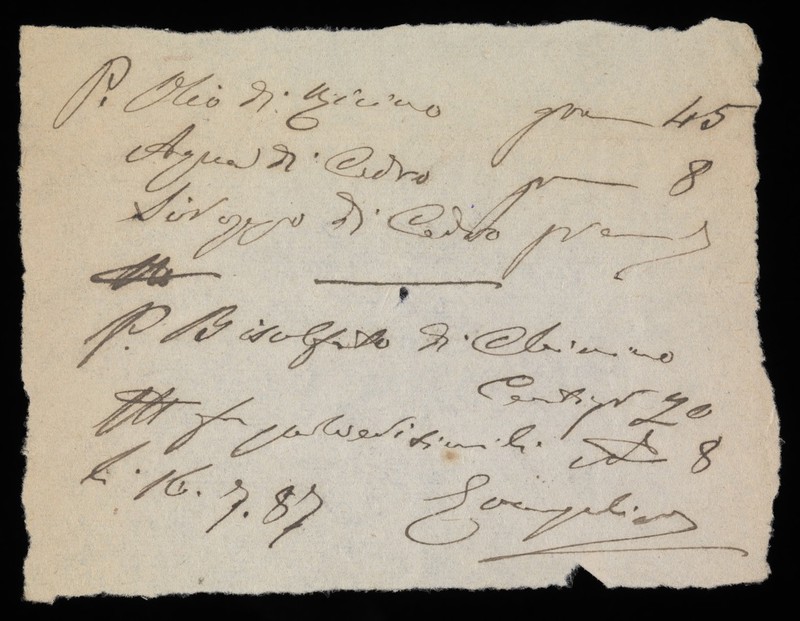 P. Olio di Ricino gram 45
Aqua di Cedro gram 8
Siroppo di Cedro gram
P. Bisolfato di Chinino
Centigr 20
f polveri simili N 8
li 16. 7. 87 Evangelisti